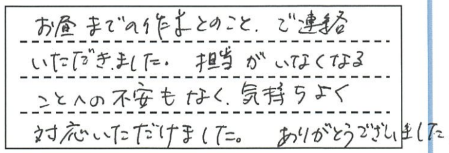 お昼までの作業とのこと、ご連絡
いただきました。担当がいなくなる
ことへの不安もなく、気持ちよく
対応いただけました。 ありがとうございました